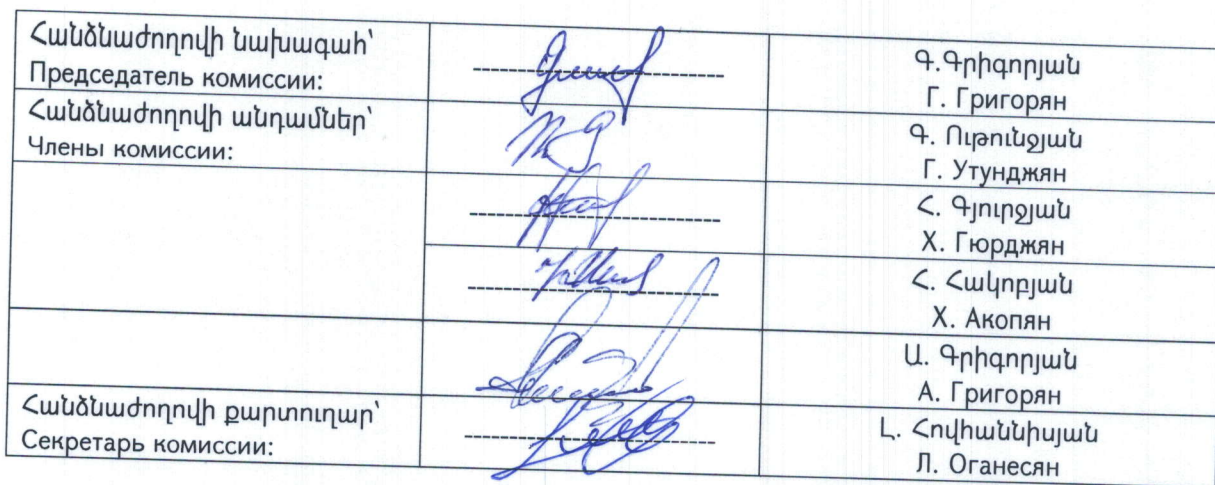 Հանձնաժողովի նախագահ՝
Председатель комиссии:
Գ.Գրիգորյան
Г. Григорян
Հանձնաժողովի անդամներ՝
Члены комиссии:
Գ. Ութունջյան
Г. Утунджян
Հ. Գյուրջյան
Х. Гюрджян
Հ. Հակոբյան
Х. Акопян
Ա. Գրիգորյան
А. Григорян
Հանձնաժողովի քարտուղար՝
Секретарь комиссии:
Լ. Հովհաննիսյան
Л. Оганесян